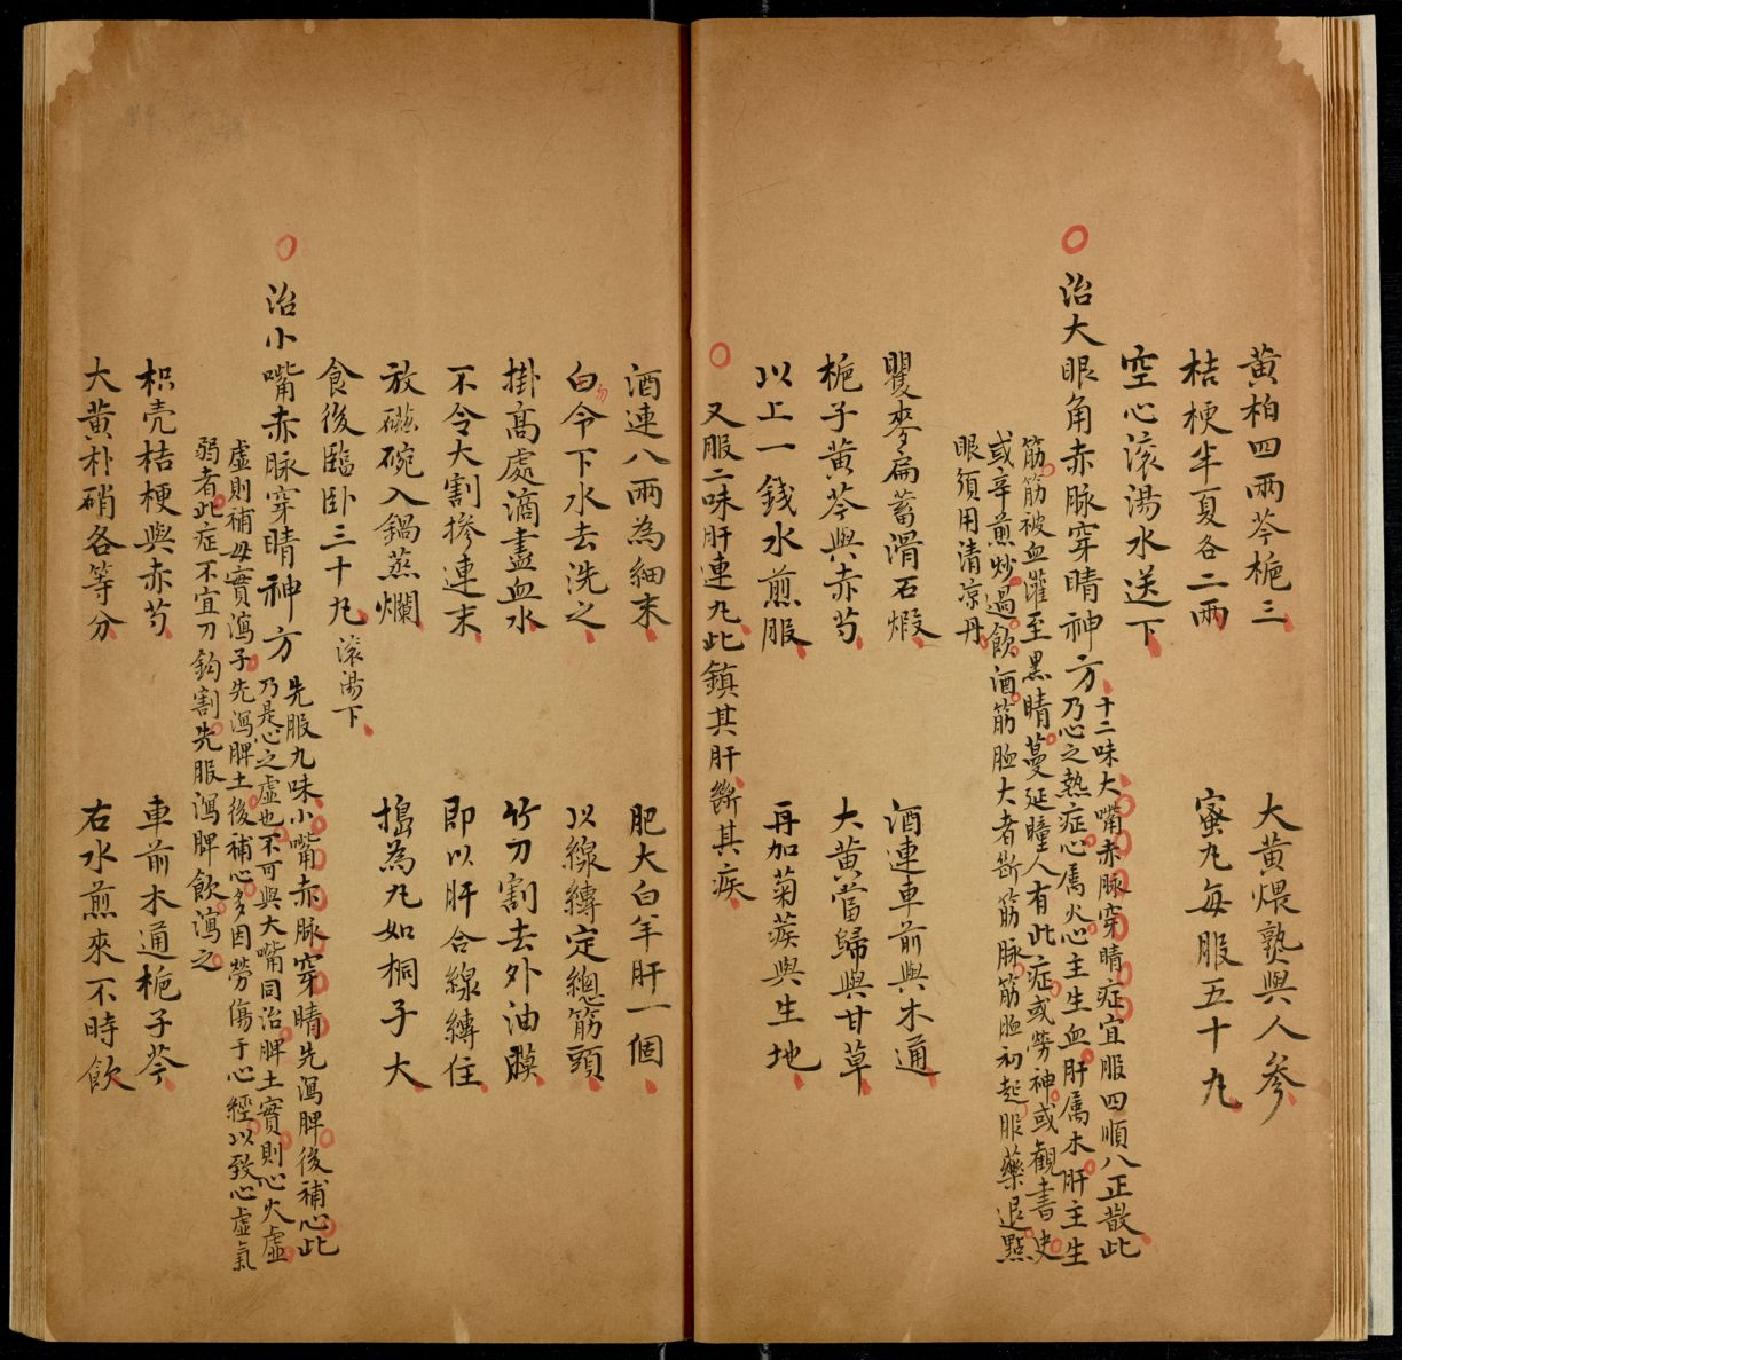 黃柏四兩芩梔三　大黃煨熟與人參
桔梗半夏各二兩　蜜丸每服五十丸
空心滾湯水送下
治大眼角赤脉穿睛神方 十二味大嘴赤脉穿睛症宜服四順八正散此
乃心之熱症心属火心主生血肝属木肝主生
筋筋被血灌至黑睛蔓延瞳人有此症或勞神或觀書史
或辛煎炒過飲酒筋脉大者斷筋脉筋脉初起服藥退點
眼須用清凉丹
瞿麥扁蓄滑石煅　酒連車前與木通
梔子黃芩與赤芍　大黃當歸與甘草
以上一錢水煎服　再加菊蒺與生地
又服二味肝連丸此鎮其肝斷其疾
酒連八兩為細末　肥大白羊肝一個
白令下水去洗之　以線縛定總筋頭
勿
掛高處滴盡血水　竹刀割去外油膜
不令大割摻連末　即以肝合線縛住
放磁碗入鍋蒸爛　搗為丸如桐子大
食後臨卧三十丸 滚湯下
治小嘴赤脉穿睛神方 先服九味小嘴赤脉穿睛先瀉脾後補心此
乃是心之虛也不可與大嘴同治脾土實則心火虛
虛則補母實瀉子先瀉脾土後補心多因勞傷于心經以致心虛氣
弱者此症不宜刀鈎割先服瀉脾飲瀉之
枳壳桔梗與赤芍　車前木通梔子芩
大黃朴硝各等分　右水煎來不時飲